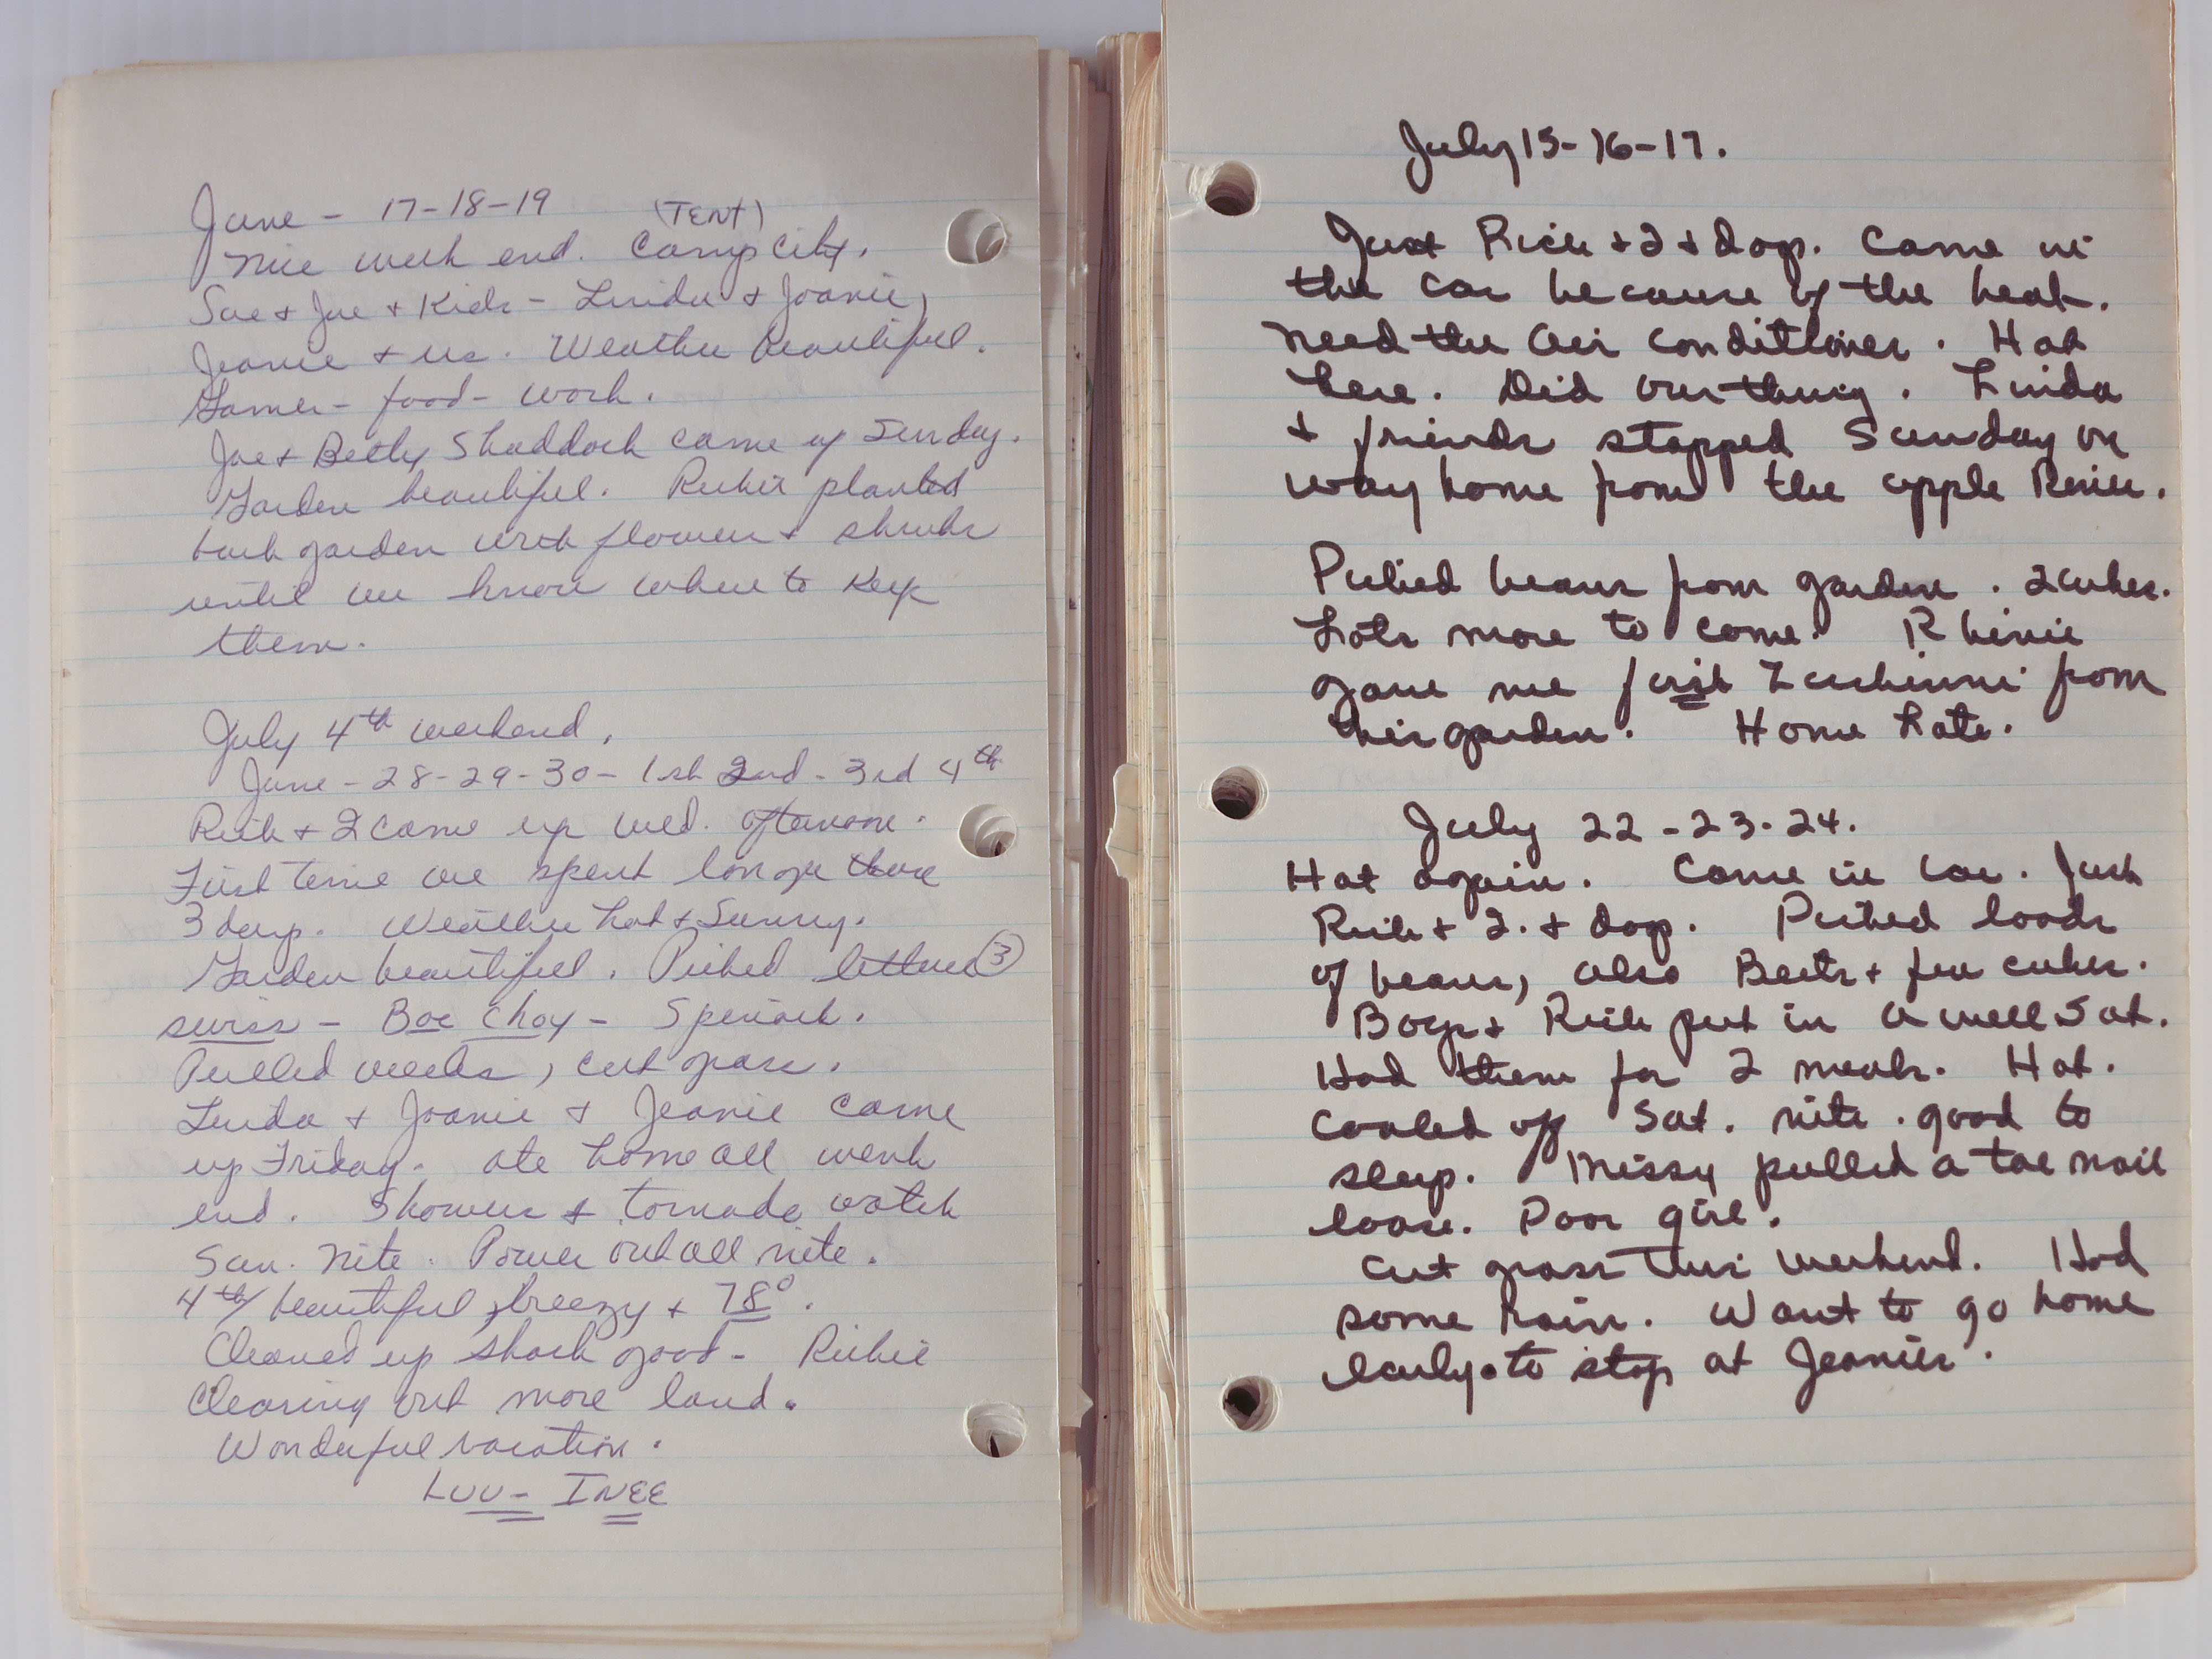 June - 17-18-19 (TENT)
Nice week end. Camp City.
Sue + Joe + Kids - Linda + Joanie,
Jeanie + us. Weather beautiful.
Games - food - work.
Joe + Betty Shaddock came up Sunday.
Garden beautiful. Richie planted
back garden with flowers + shrubs
until we know where to keep
them.
July 4th weekend,
June - 28-29-30 - 1st 2nd - 3rd 4th
Rich + I came up wed. afternoon.
First time we spent longer than
3 days. Weather hot + Sunny.
Garden beautiful. Picked lettuce (3)
swiss - Boc Choy - Spinach.
Pulled weeds, cut grass.
Linda + Joanie + Jeanie came
up Friday. ate home all week
end. Showers + tornado watch
Sun. Nite. Power out all nite.
4th/ beautiful, breezy + 78°.
Cleaned up shack good - Richie
Clearing out more land.
Wonderful vacation.
Luv - INEE
July 15-16-17.
Just Rich + I + dog. Came in
the car because of the heat.
Need the air conditioner. Hot
here. Did our thing. Linda
+ friends stopped Sunday on
way home from the apple River.
Picked beans from garden. 2 cukes.
Lots more to come.
gave me first Zuchinni from
garden. Home Late.
July 22-23-24.
Hot again. Came in car. Just
Rich + I. + dog. Picked loads
of beans, also Beets + few cukes.
Boys + Rich put in a well Sat.
Had them for 2 meals. Hot.
Cooled off Sat. nite. good to
sleep. Missy pulled a toe nail
loose. Poor girl.
Cut grass this weekend. Had
some rain. Want to go home
early to stop at Jeanies.